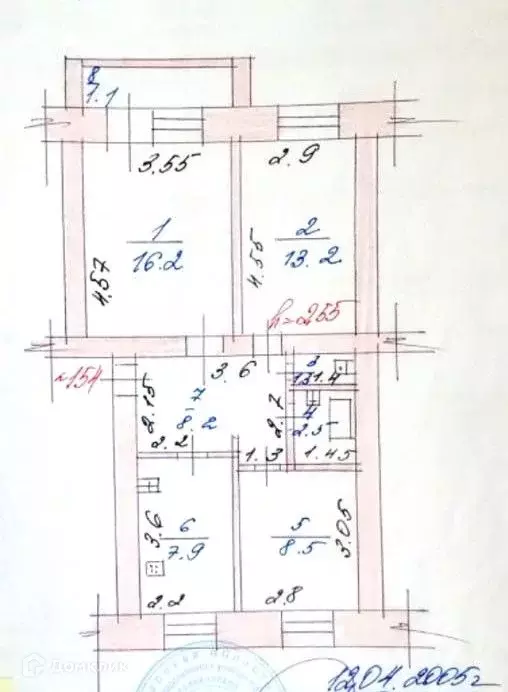 8
1.1
3.55
2.9
1
16.2
2
13.2
4.57
4.55
h=255
№154
3.6
3
1.4
7
8.2
2.15
2.7
4
2.5
2.2
1.3
1.45
6
7.9
3.6
5
8.5
3.05
2.2
2.8
12.04.2005г
Домклик